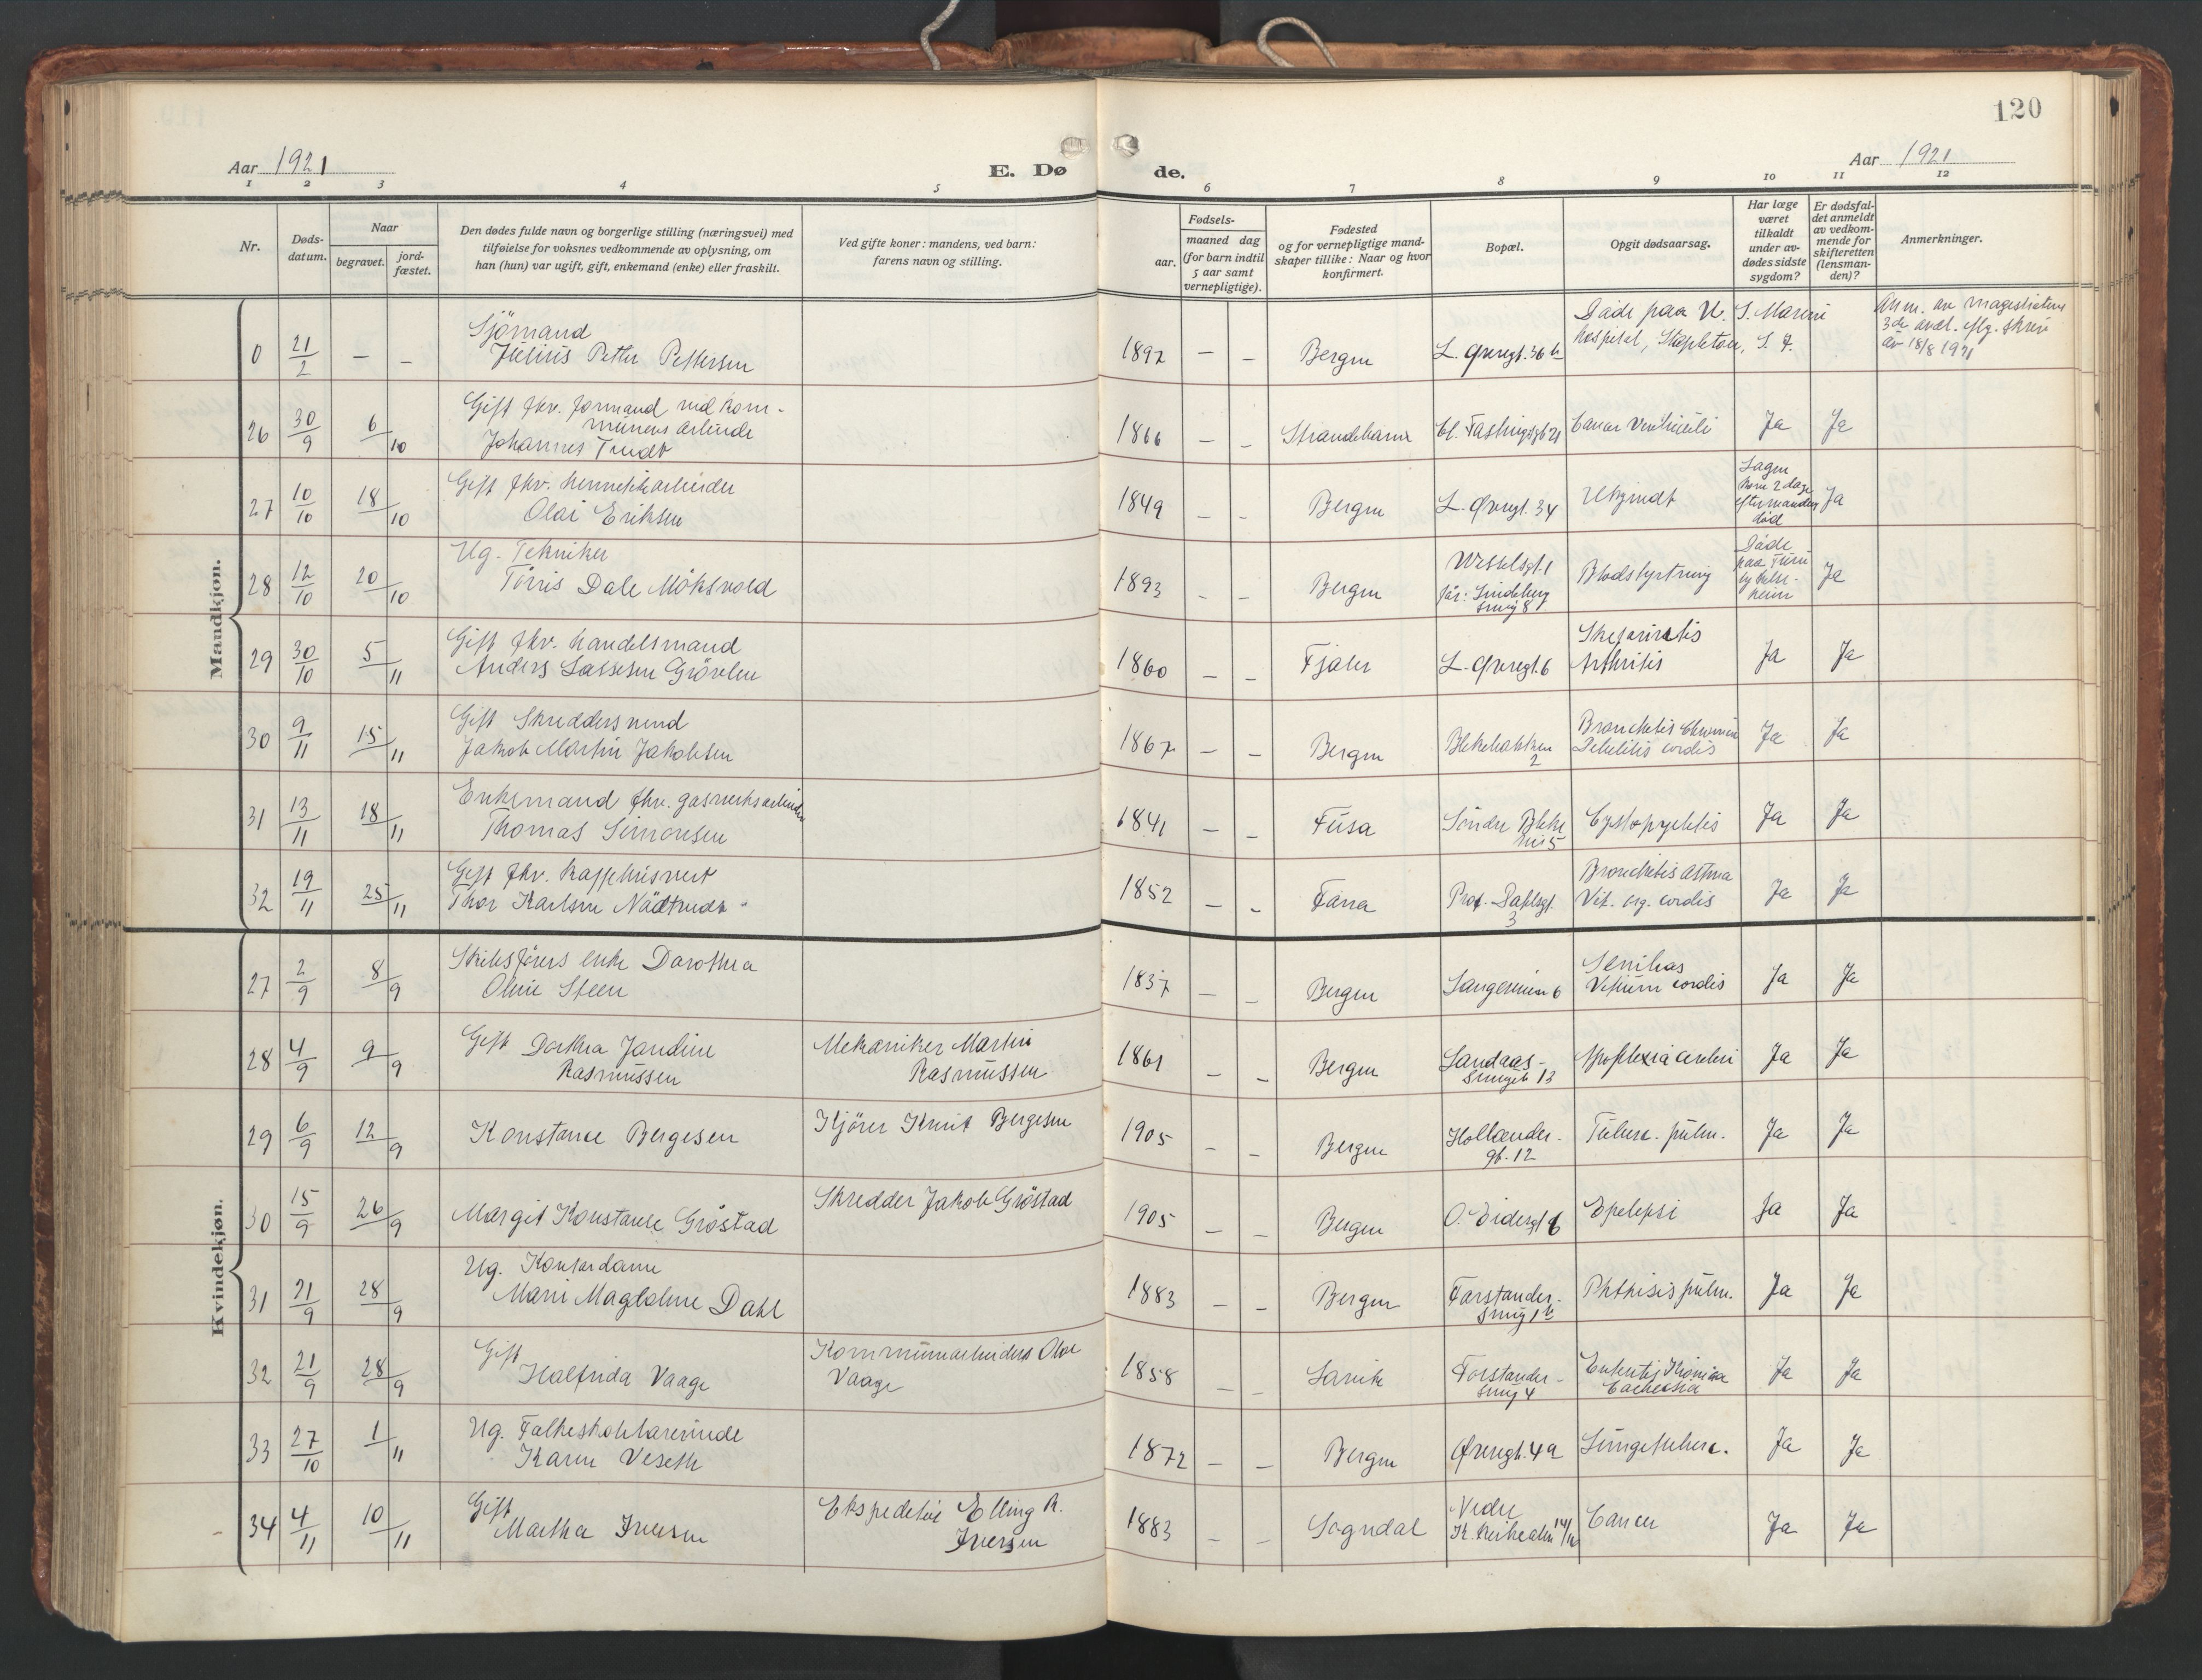 120
Aar 1921
E. Dø
de.
Aar 1921
1 2 3 4 5 6 7 8 9 10 11 12
Nr.
Døds-
datum.
Naar
begravet.
jord-
fæstet.
Den dødes fulde navn og borgerlige stilling (næringsvei) med
tilføielse for voksnes vedkommende av oplysning, om
han (hun) var ugift, gift, enkemand (enke) eller fraskilt.
Ved gifte koner: mandens, ved barn:
farens navn og stilling.
Fødsels-
aar.
maaned dag
(for barn indtil
5 aar samt
vernepligtige).
Fødested
og for vernepligtige mand-
skaper tillike: Naar og hvor
konfirmert.
Bopæl.
Opgit dødsaarsag.
Har læge
været
tilkaldt
under av-
dødes sidste
sygdom?
Er dødsfal-
det anmeldt
av vedkom-
mende for
skifteretten
(lensman-
den)?
Anmerkninger.
Mandkjøn.
0 21/2 – – Sjömand
Julius Petter Pettersen
1897 – – Bergen L. Øvregt. 36b
Døde paa U. S. Marine
hospital, Stapleton, S. I.
Anm. av magistratens
3de avd. flg. skriv
av 18/8 1921
26 30/9 6/10 Gift fhv. formand ved kom-
munens arbeide
Johannes Trudt
1866 – – Strandebarm Cl. Fastingsgt 21 Cancer Ventriculi Ja Ja
27 10/10 18/10 Gift fhv. hermetikarbeider
Olai Eriksen
1849 – – Bergen L. Øvregt. 34 Ukjendt
Lægen
kom 2 dage
efter mandens
død
Ja
28 12/10 20/10 Ug. Tekniker
Törris Dale Möksvold
1893 – – Bergen Wesselsgt. 1
før: Lindeberg
smug 8
Blodstyrtning
Døde
paa Turu
sykehe-
heim
Ja
29 30/10 5/11 Gift fhv. handelsmand
Anders Lassesen Grövlen
1860 – – Fjaler L. Øvregt. 6
Arthritis Ja Ja
30 9/11 15/11 Gift Skreddersvend
Jakob Martin Jakobsen
1867 – – Bergen Blekebakken
2
Bronchitis Chronica
Debilitis cordis
Ja Ja
31 13/11 18/11 Enkemand fhv. gasverksarbeider
Thomas Simonsen
1841 – – Fusa Söndre Bleke
vei 5
Cystopyelitis Ja Ja
32 19/11 25/11 Gift fhv. kaffehusvert
Thor Karlsen Nödtvedt
1852 – – Fana Prof. Dahlsgt.
3
Bronchitis Asthma
Vit. org. cordis
Ja Ja
Kvindekjøn.
27 2/9 8/9 Skibsförers enke Dorothea
Oline Steen
1837 – – Bergen Langeveien 6
Senilitas
Vitium cordis
Ja Ja
28 4/9 9/9 Gift Dorthea Jandine
Rasmussen
Mekaniker Martin
Rasmussen
1861 – – Bergen Landaas-
smuget 13
Apoplexia cerebri Ja Ja
29 6/9 12/9 Konstanse Bergesen Kjörer Knut Bergesen
1905 – – Bergen Hollænder-
gt. 12
Tuberc. pulm. Ja Ja
30 15/9 26/9 Margit Konstanse Gröstad Skredder Jakob Gröstad
1905 – – Bergen O. Eidesgt 6 Epelepsi Ja Ja
31 21/9 28/9 Ug. Kontordame
Marie Magdalene Dahl
1883 – – Bergen Forstander-
smug 1b
Phthisis pulm. Ja Ja
32 21/9 28/9 Gift
Halfrida Vaage
Kommunearbeider Olai
Vaage
1858 – – Forstander-
smug 4
Enteritis Kronica
Cachexia
Ja Ja
33 27/10 1/11 Ug. Folkeskolelærerinde
Karen Veseth
1872 – – Bergen Øvregt. 4a Lungetuberc. Ja Ja
34 4/11 10/11 Gift
Martha Iversen
Ekspeditör Elling R.
Iversen
1883 – – Sogndal Nedre
K. kirkealm 14/16
Cancer Ja Ja